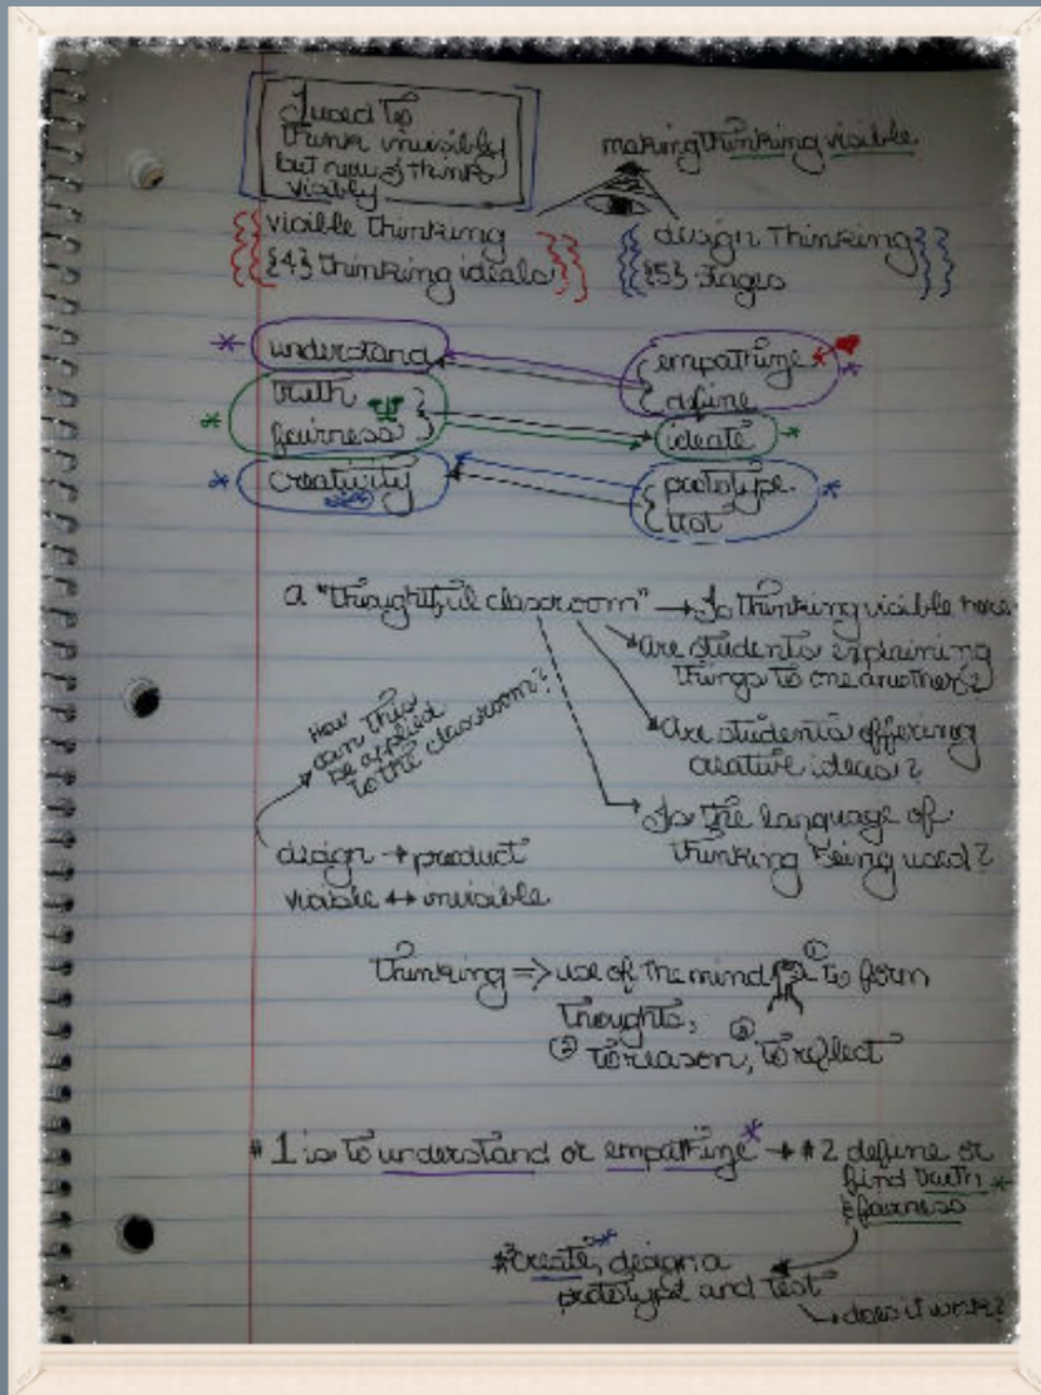 I used to
think invisibly
but now I think
visibly
making thinking visible
visible thinking
{4} thinking ideals
design thinking
{5} stages
understand
truth
fairness
creativity
empathize
define
ideate
prototype
test
a "thoughtful classroom" → Is thinking visible here
Are students explaining
things to one another?
Are students offering
creative ideas?
Is the language of
thinking being used?
How
can this
be applied
to the classroom?
design → product
visible ↔ invisible
thinking => use of the mind ① to form
thoughts,
② to reason, ③ to reflect
#1 is to understand or empathize* → #2 define or
find truth *
& fairness
#3 create,* design a
prototype and test
does it work?